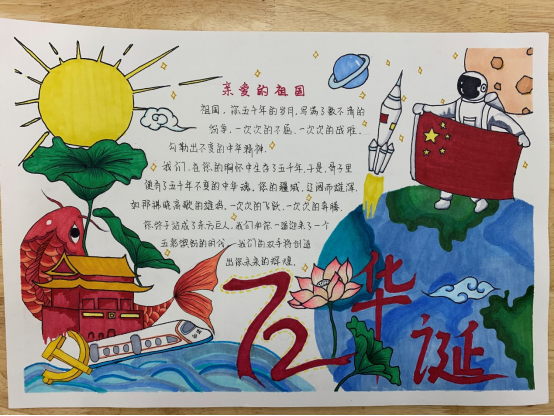 亲爱的祖国
祖国，你五千年的岁月，写满了数不清的
纷争，一次次的不屈，一次次的战胜，
勾勒出不变的中华精神。
我们，在你的胸怀中生存了五千年，于是，骨子里
便有了五千年不变的中华魂，你的疆域，辽阔而雄浑，
如那拼晓高歌的雄鸡，一次次的飞跃，一次次的奔腾，
你终于站成了东方巨人，我们和你一路迎来了一个
五彩缤纷的时代，我们的双手将创造
出你未来的辉煌。
72
华
诞